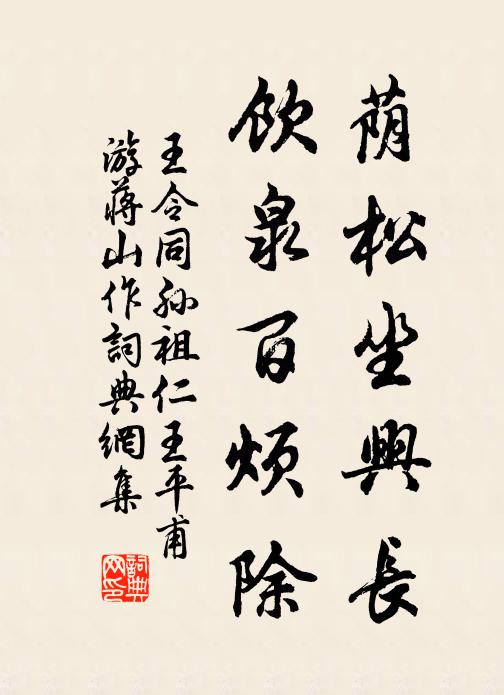 荫松坐興長
飲泉百煩除
王令同孙祖仁王平甫
游蔣山作詞典網集
詞典
网印